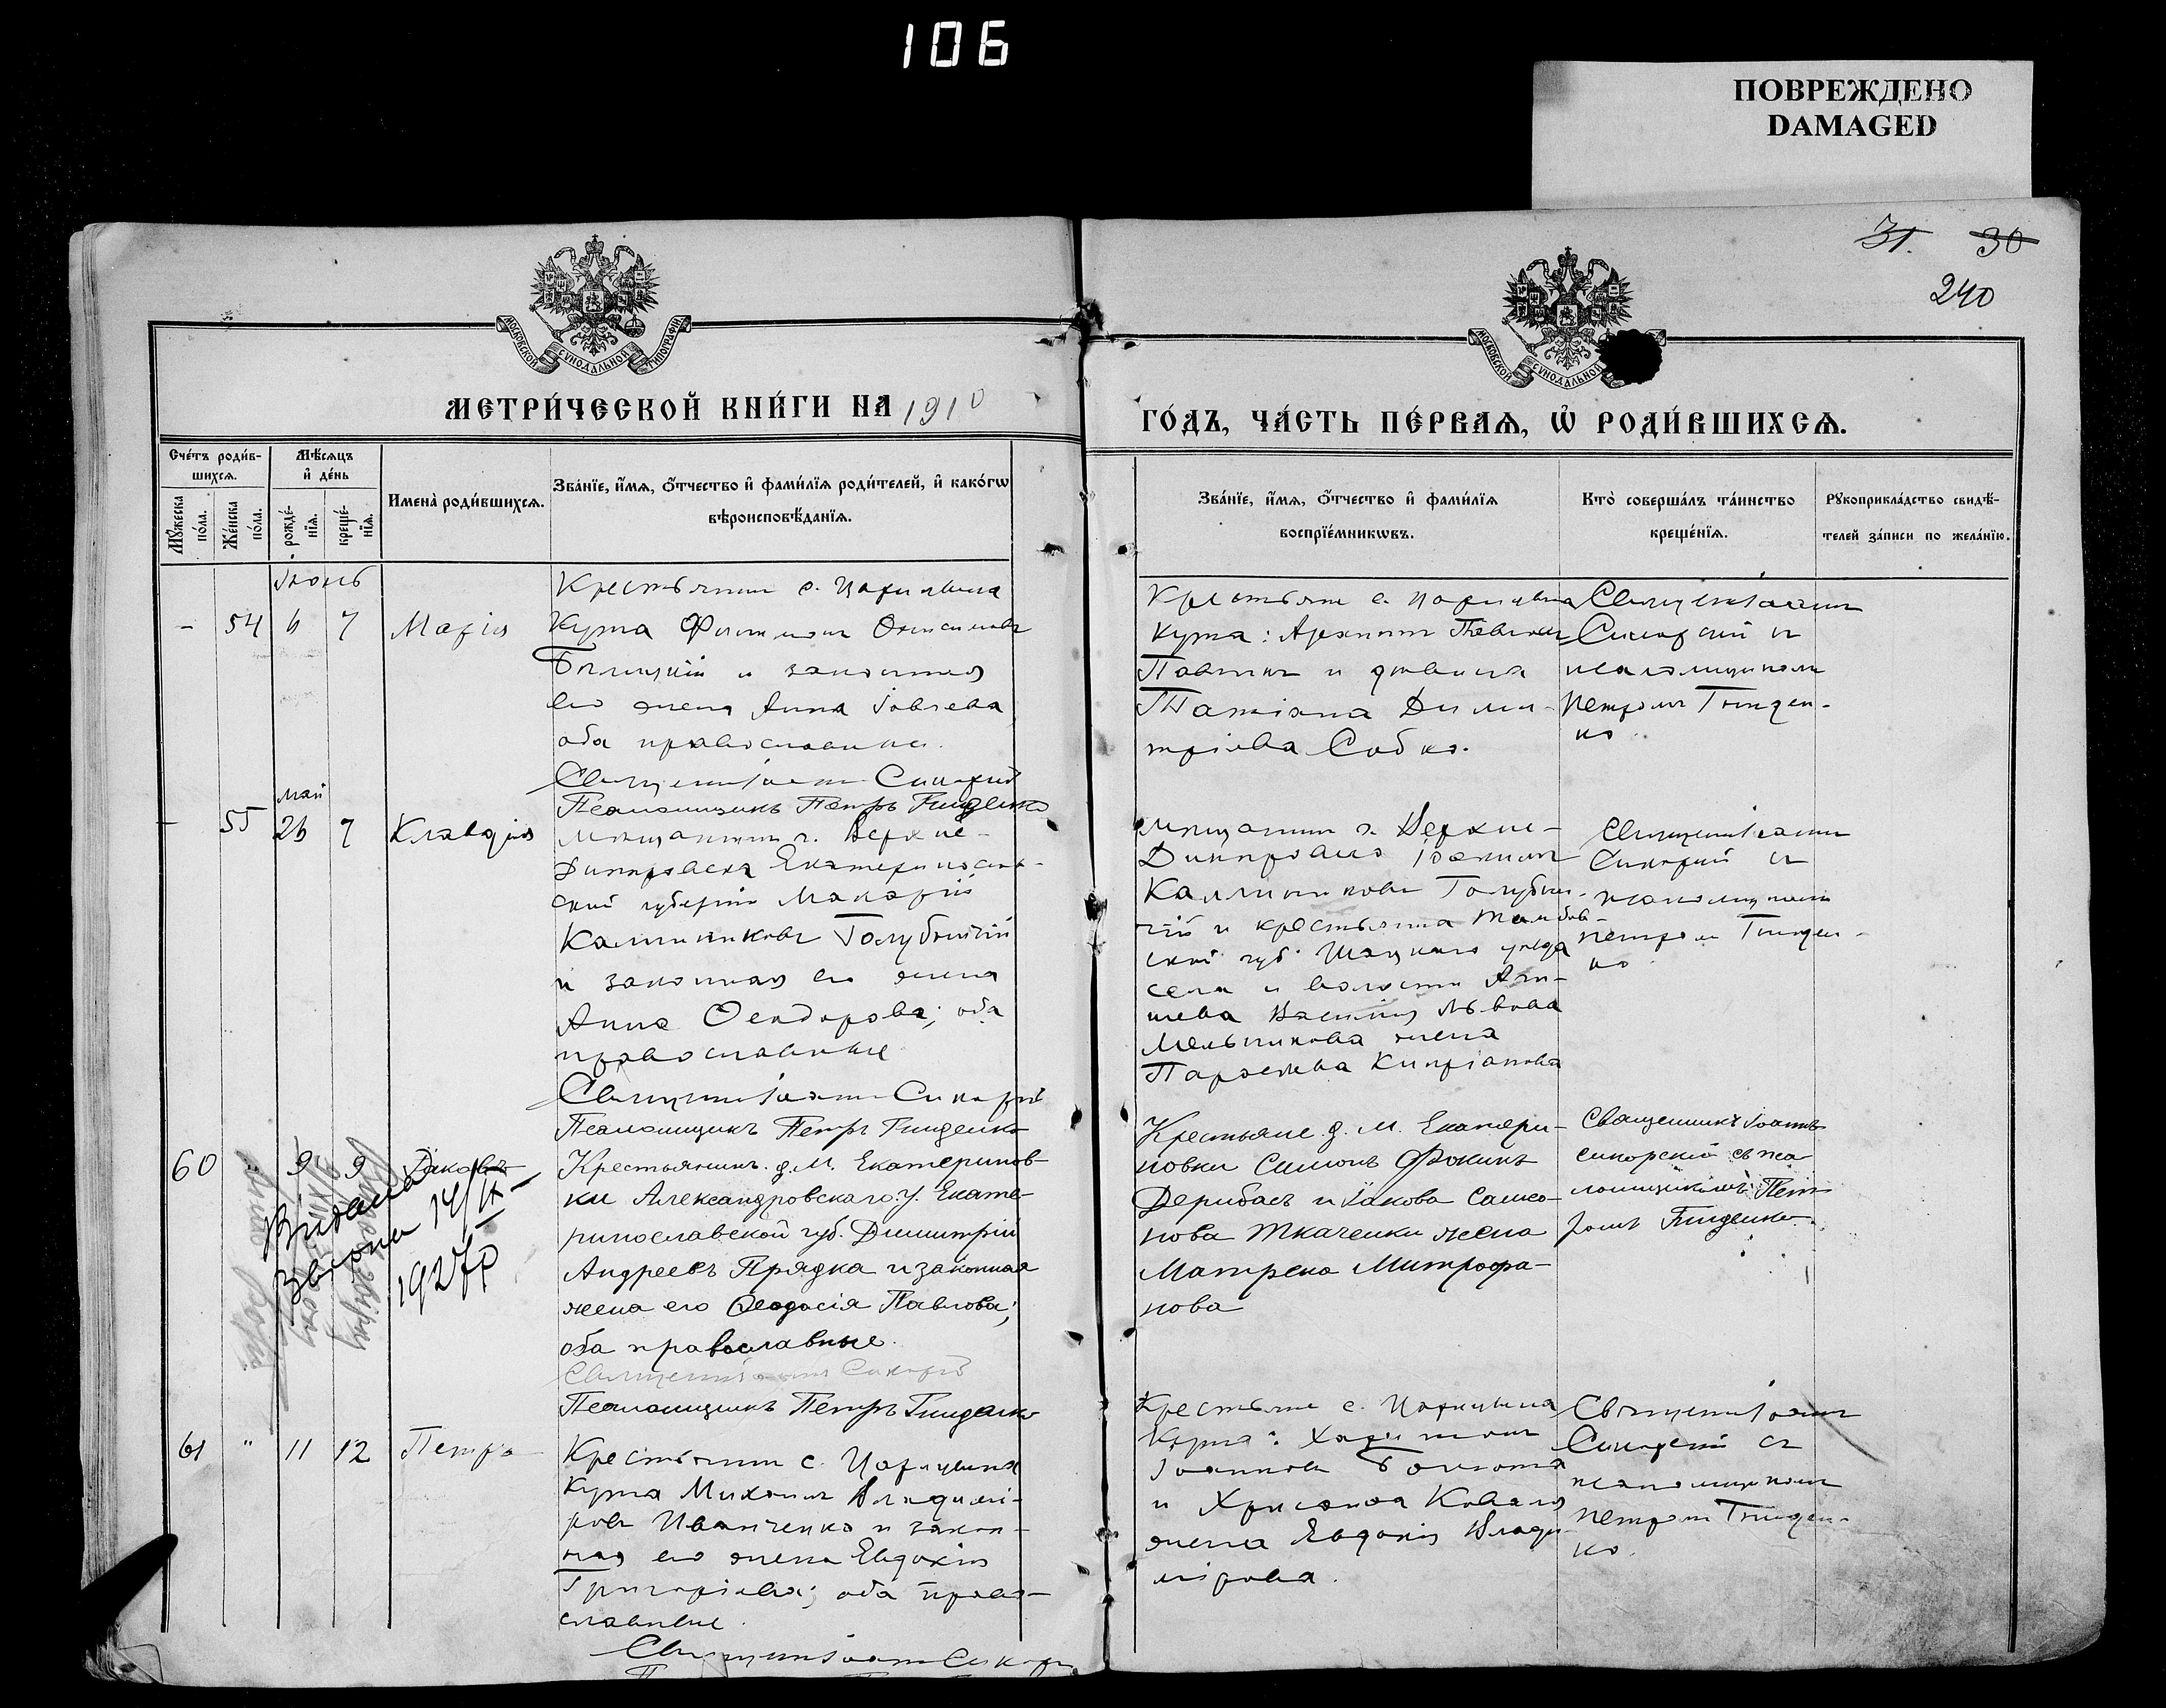 106
ПОВРЕЖДЕНО
DAMAGED
31. 30
240
МОСКОВСКОЙ СѴНОДАЛЬНОЙ ТИПОГРАФІИ
МОСКОВСКОЙ СѴНОДАЛЬНОЙ
МЕТРИ́ЧЕСКОЙ КНИ́ГИ НА 1910
ГО́ДЪ, ЧА́СТЬ ПЕ́РВАѦ, Ѡ҆ РОДИ́ВШИХСѦ.
Сче́тъ роди́в-
шихсѧ.
Мꙋ́жеска по́ла.
Же́нска по́ла.
Мѣ́сѧцъ
и҆ де́нь
рожде́-
нїѧ.
креще́-
нїѧ.
Имена̀ роди́вшихсѧ.
Зва́нїе, и҆́мѧ, о҆́тчество и҆ фами́лїѧ роди́телей, и҆ како́гѡ
вѣроисповѣ́данїѧ.
Зва́нїе, и҆́мѧ, о҆́тчество и҆ фами́лїѧ
воспрїе́мникѡвъ.
Кто̀ соверша́лъ та́инство
креще́нїѧ.
Рꙋкоприкла́дство свидѣ́-
телей за́писи по жела́нїю.
Іюнь
- 54 6 7 Марія
Крестьянин с. Царицына
Кута Онисимовъ
Бѣлицкій и законная
его жена Анна Іовлева
оба православные.
Псаломщикъ Петръ Гниденко
Крестьяне с. Царицына
Кута: Архипъ
и дѣвица
Татіана Дими-
тріева Собко.
Священ Іоанн
Сикорскій съ
псаломщиком
Петром Гниден-
ко.
май
- 55 26 7 Клавдія
мѣщанин г. Верхне-
Днѣпровска Екатеринослав-
ской губерніи Макарій
Каллиниковъ Голубничій
и законная его жена
Анна Ѳеодорова; оба
православные
Псаломщикъ Петръ Гниденко
мѣщанин г. Верхне-
Днѣпровска
Каллиниковъ Голубни-
чій и крестьянка Тамбов-
ской губ. Шацкаго уѣзда
села и волости
Василія Львова
Мельникова жена
Параскева Кипріанова
Священ Іоанн
Сикорскій съ
псаломщиком
Петром Гниден-
ко.
60 " 9 9 Іаковъ
Видана
14/II
1927р
Крестьянинъ. д. М. Екатеринов-
ки Александровскаго. у. Екате-
ринославской губ. Димитрій
Андреевъ Прядка и законная
жена его Ѳеодосія Павлова;
оба православные.
Псаломщикъ Петръ Гниденко
Крестьяне д. М. Екатери-
новки Симонъ Фокинъ
Дерибасъ и Іакова Самсо-
нова Ткаченки жена
Матрена Митрофа-
нова
Священникъ Іоаннъ
Сикорскій съ пса
ломщикомъ Пет
ромъ Гниденко.
61 " 11 12 Петръ
Крестьянин с. Царицына
Кута Михаил Владимі-
ров Иванченко и закон-
ная его жена Евдокія
Григоріева; оба право-
славные.
Крестьяне с. Царицына
Кута: Харитон
Іоаннов
и Коваля
жена Евдокія Влади
мірова.
Священ Іоанн
Сикорскій съ
псаломщиком
Петром Гниден-
ко.